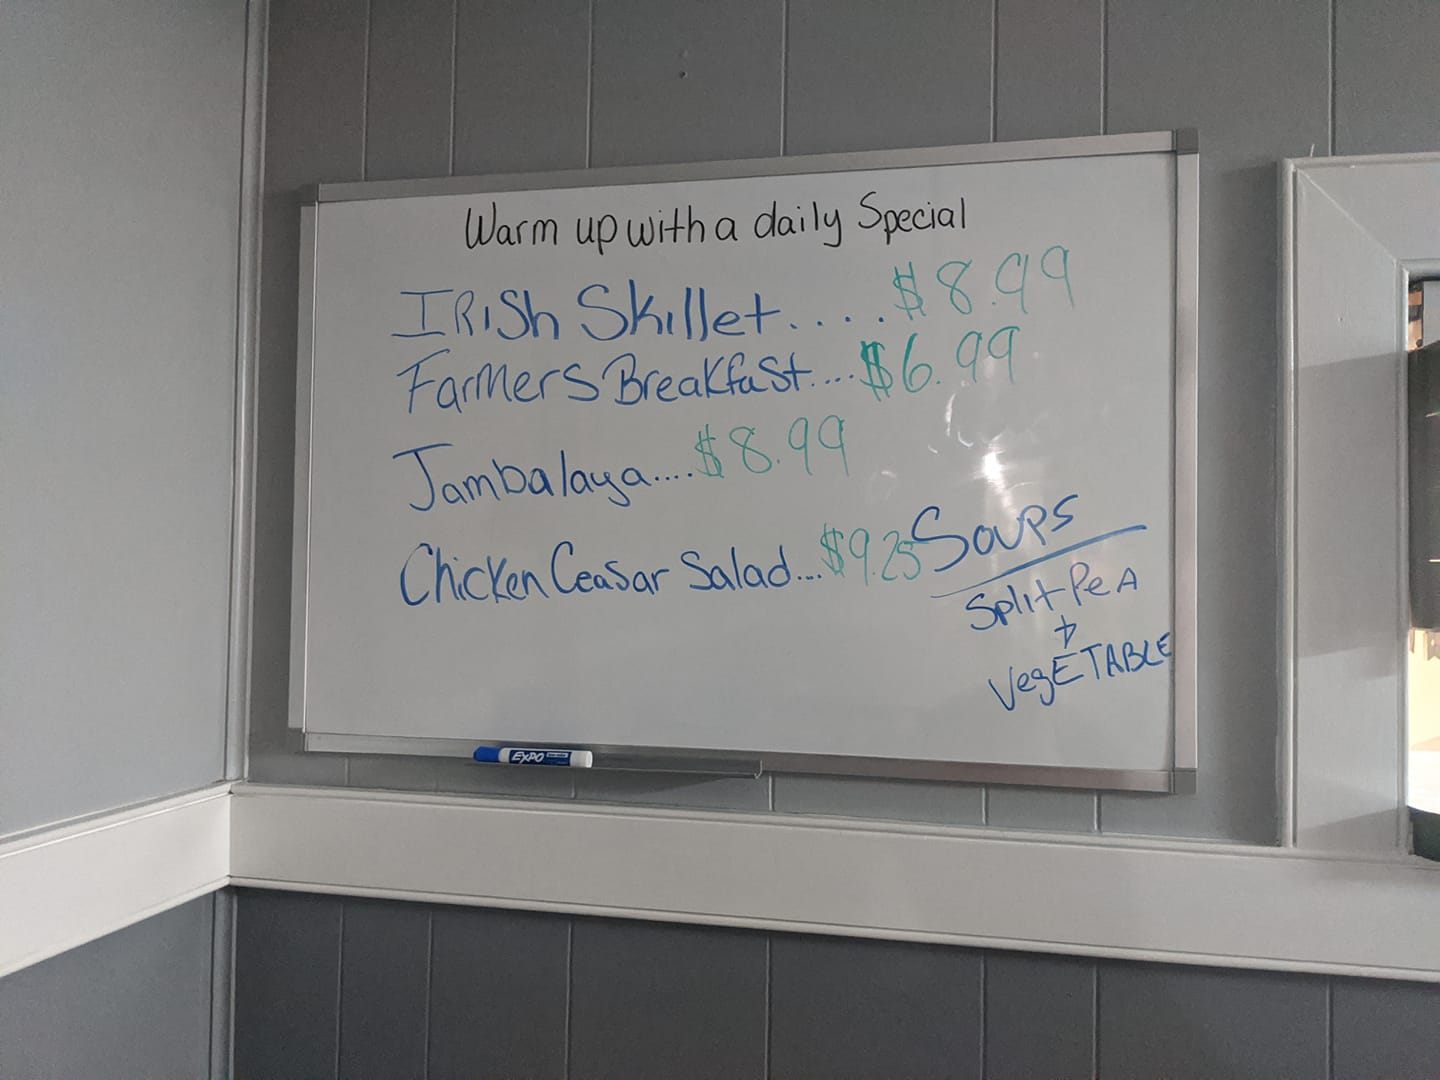 Warm up with a daily Special
IRiSh Skillet....$8.99
Farmers Breakfast....$6.99
Jambalaya....$8.99
Chicken Ceasar Salad...$9.25
Soups
Split PeA
+
VegETABLE
EXPO